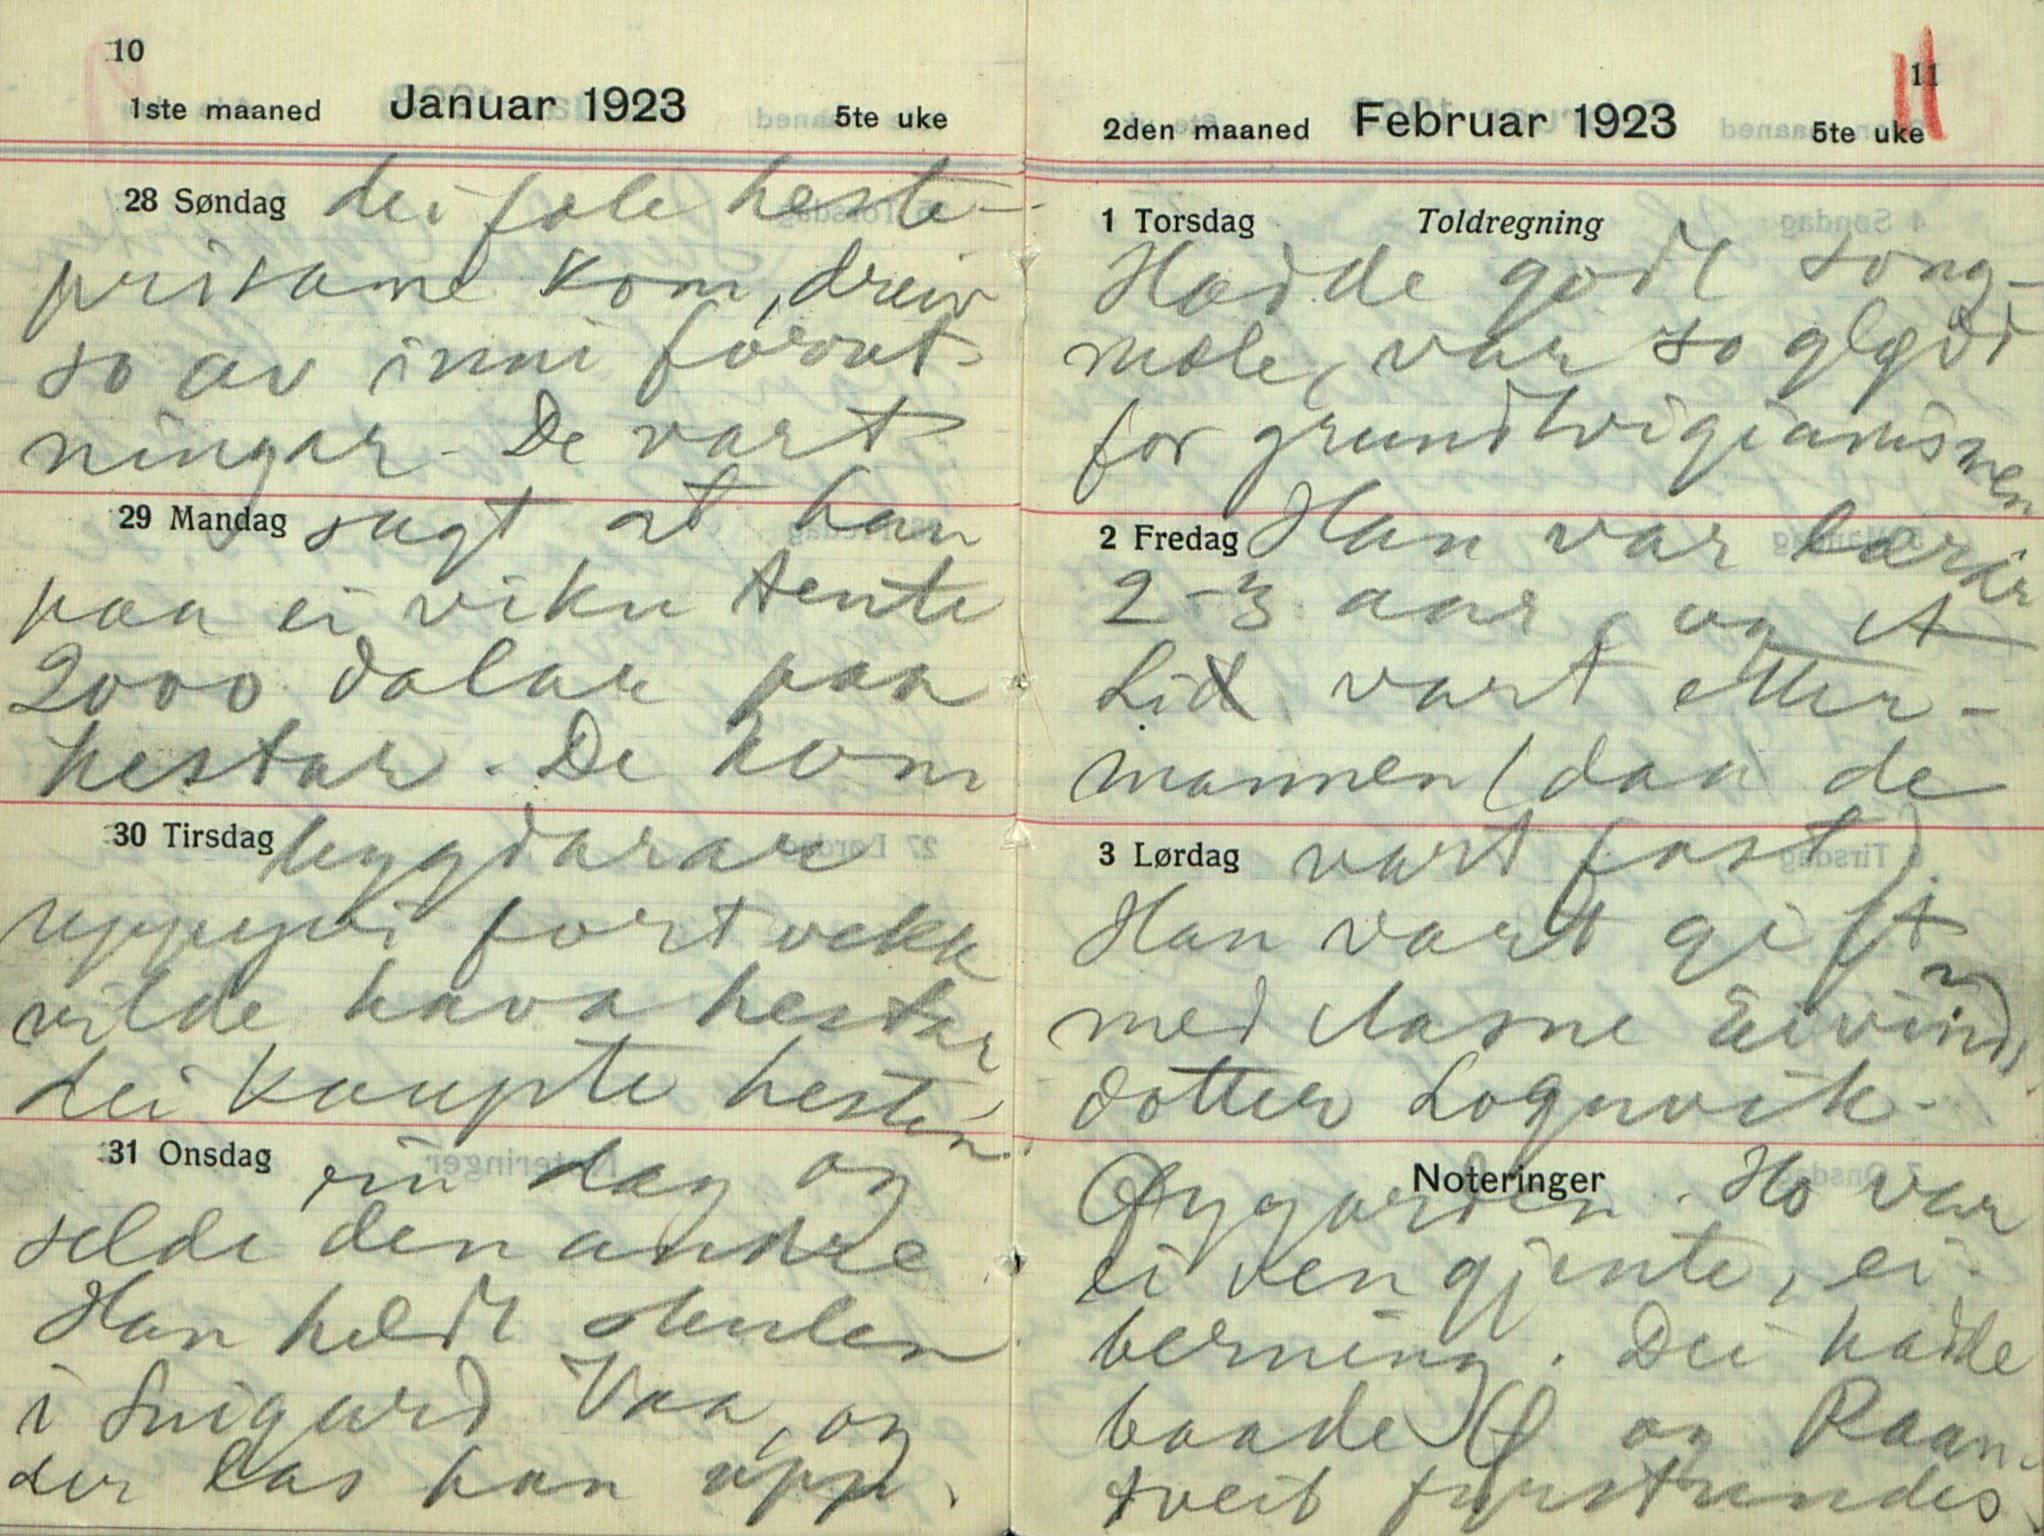 10
1ste maaned Januar 1923 5te uke
28 Søndag dei fæle heste-
prisane kom, dreiv
so av inni forret-
ningar. De vart
29 Mandag sagt at han
paa ei viku tente
2000 dalar paa
hestar. De kom
30 Tirsdag bygdarar
uppyvi fort vekk
vilde hava hestar
dei kaupte hesten
31 Onsdag ein dag og
selde den andre
Han heldt skulen
i Suigard Vaa, og
der las han upp.
11
2den maaned Februar 1923 5te uke
1 Torsdag Toldregning
Hadde godt song-
mæle, var so glød
for grundtvigianismen
2 Fredag Han var lærar
2-3 aar, og A
Lid vart etter-
mannen (daa de
3 Lørdag vart fast).
Han vart gift
med Aasne Eivinds
dotter Lognvik-
Noteringer
Øygarden. Ho var
ei ven gjente, ei
berning. Dei hadde
baade Ø og Raan-
tveit fyrstundes